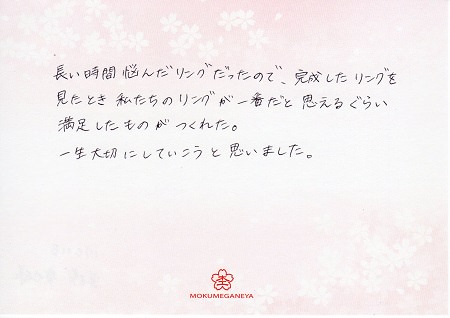 長い時間 悩んだリングだったので、完成した リングを
見たとき 私たちのリングが一番だと 思えるぐらい
満足したものが つくれた。
一生大切にしていこうと思いました。
MOKUMEGANEYA